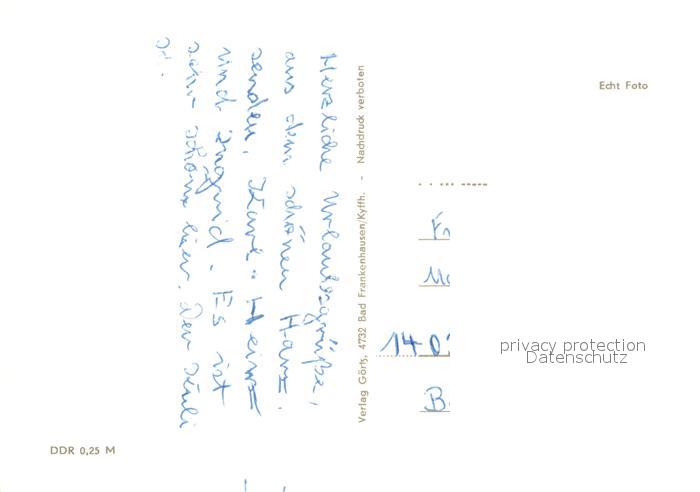 Herzliche Urlaubsgrüße,
aus dem schönen Harz.
senden, Karl-Heinz
und Ingrid. Es ist
sehr schön hier. Der
Verlag Görtz, 4732 Bad Frankenhausen/Kyffh. - Nachdruck verboten
Echt Foto
14 0
B
privacy protection
Datenschutz
DDR 0,25 M